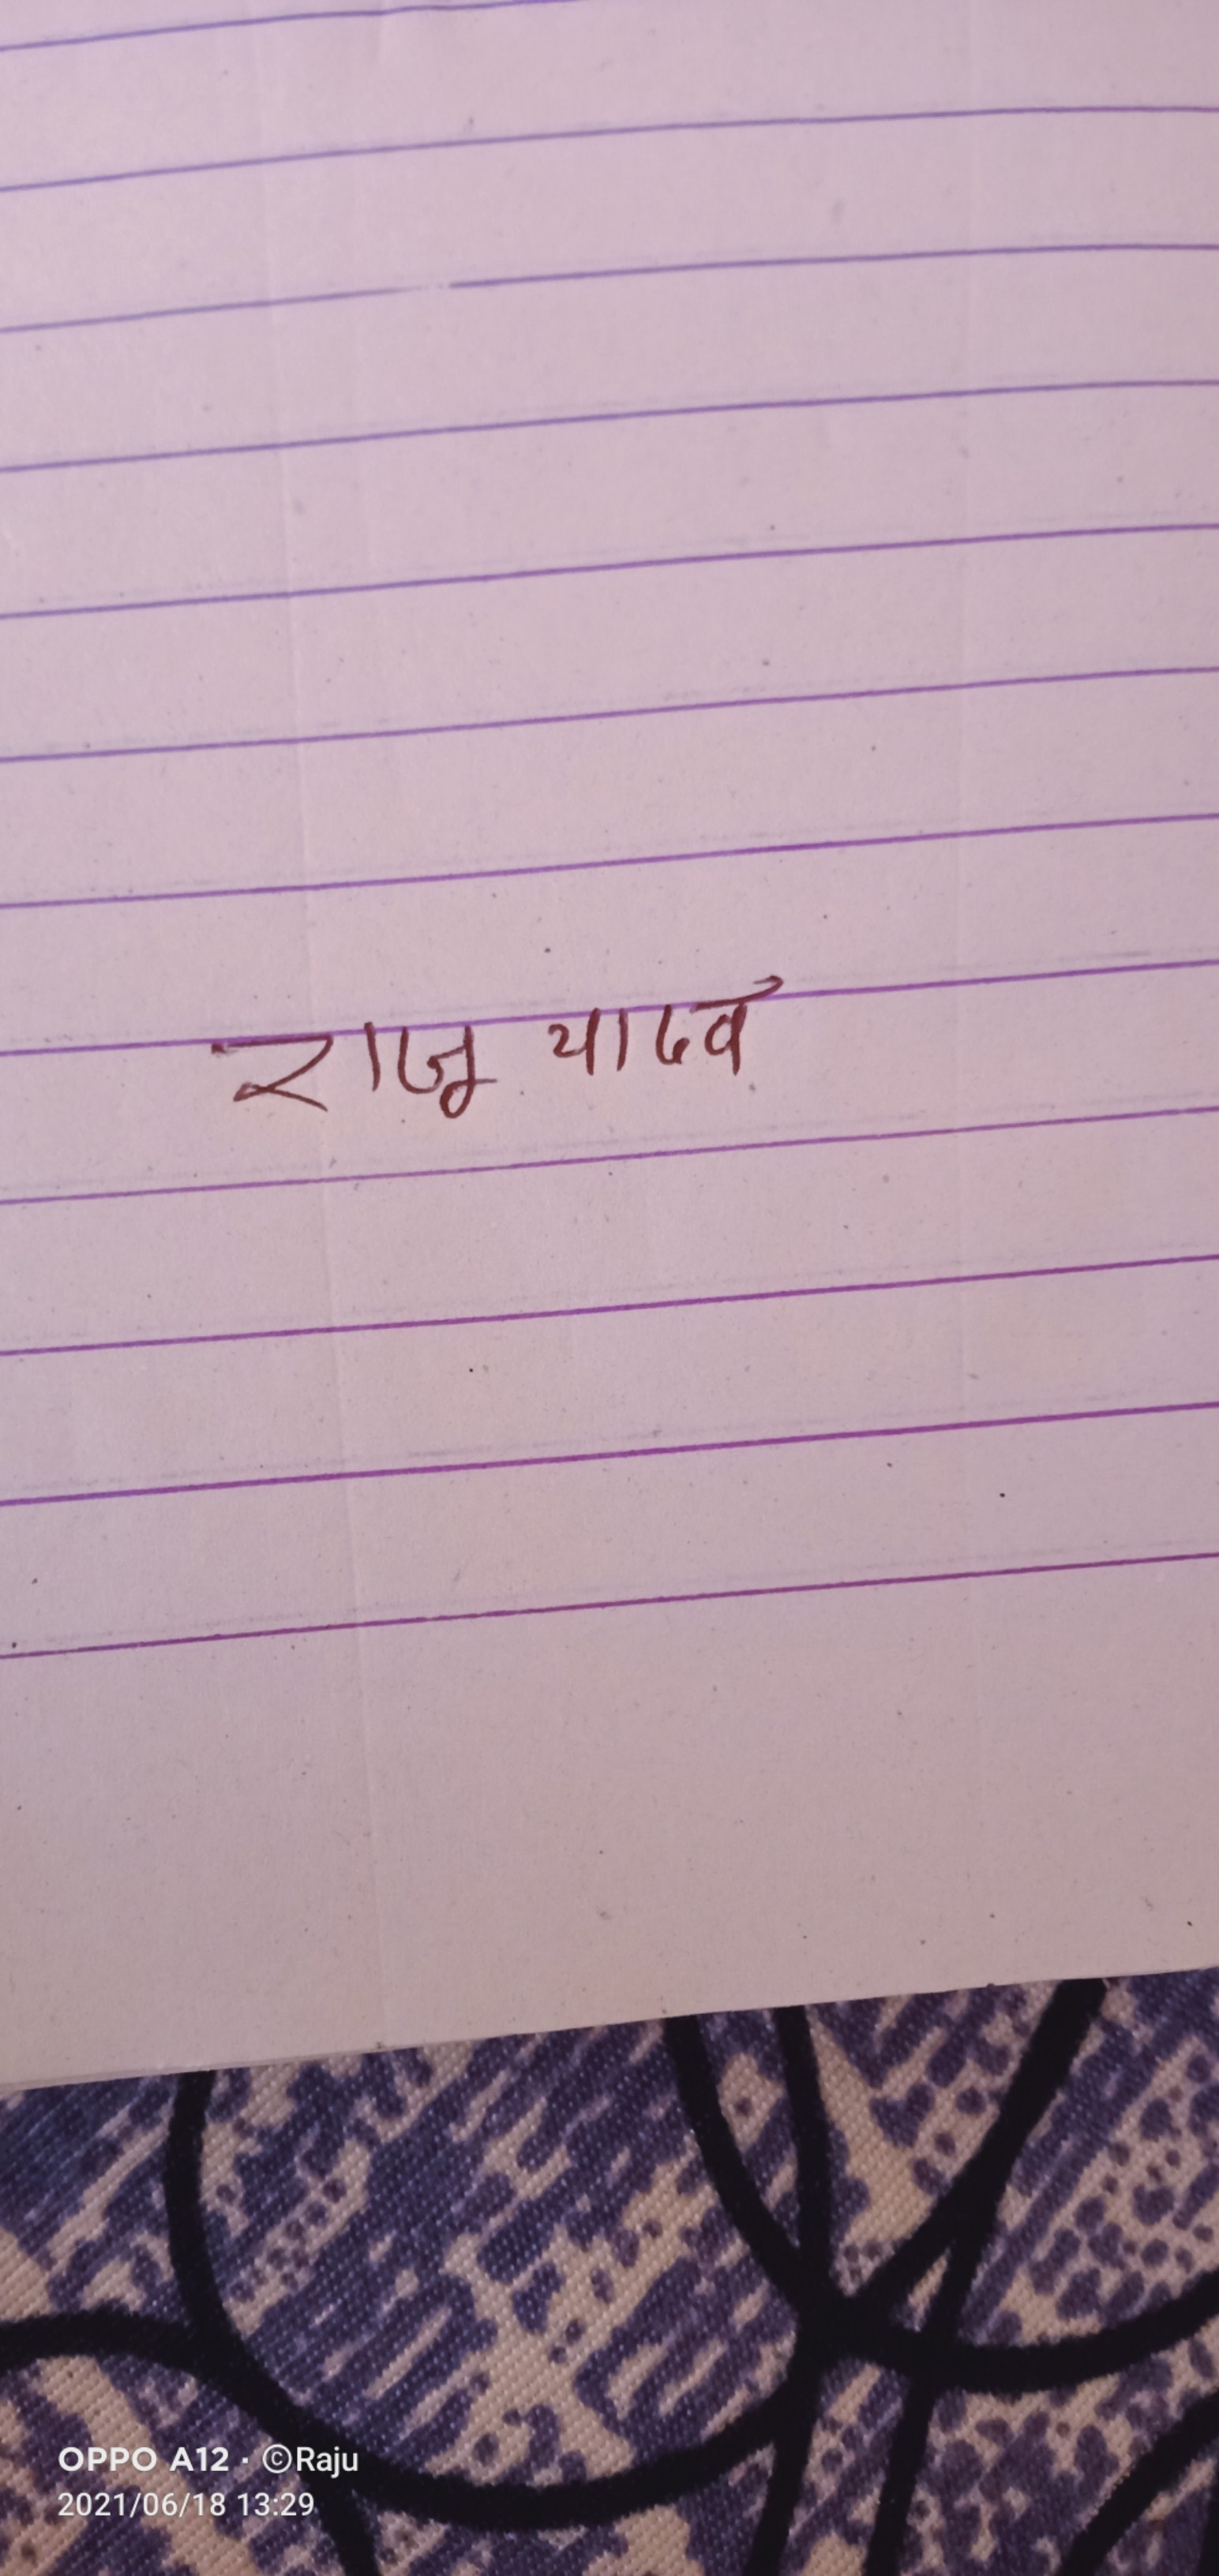 राजु यादव
OPPO A12 · ©Raju
2021/06/18 13:29